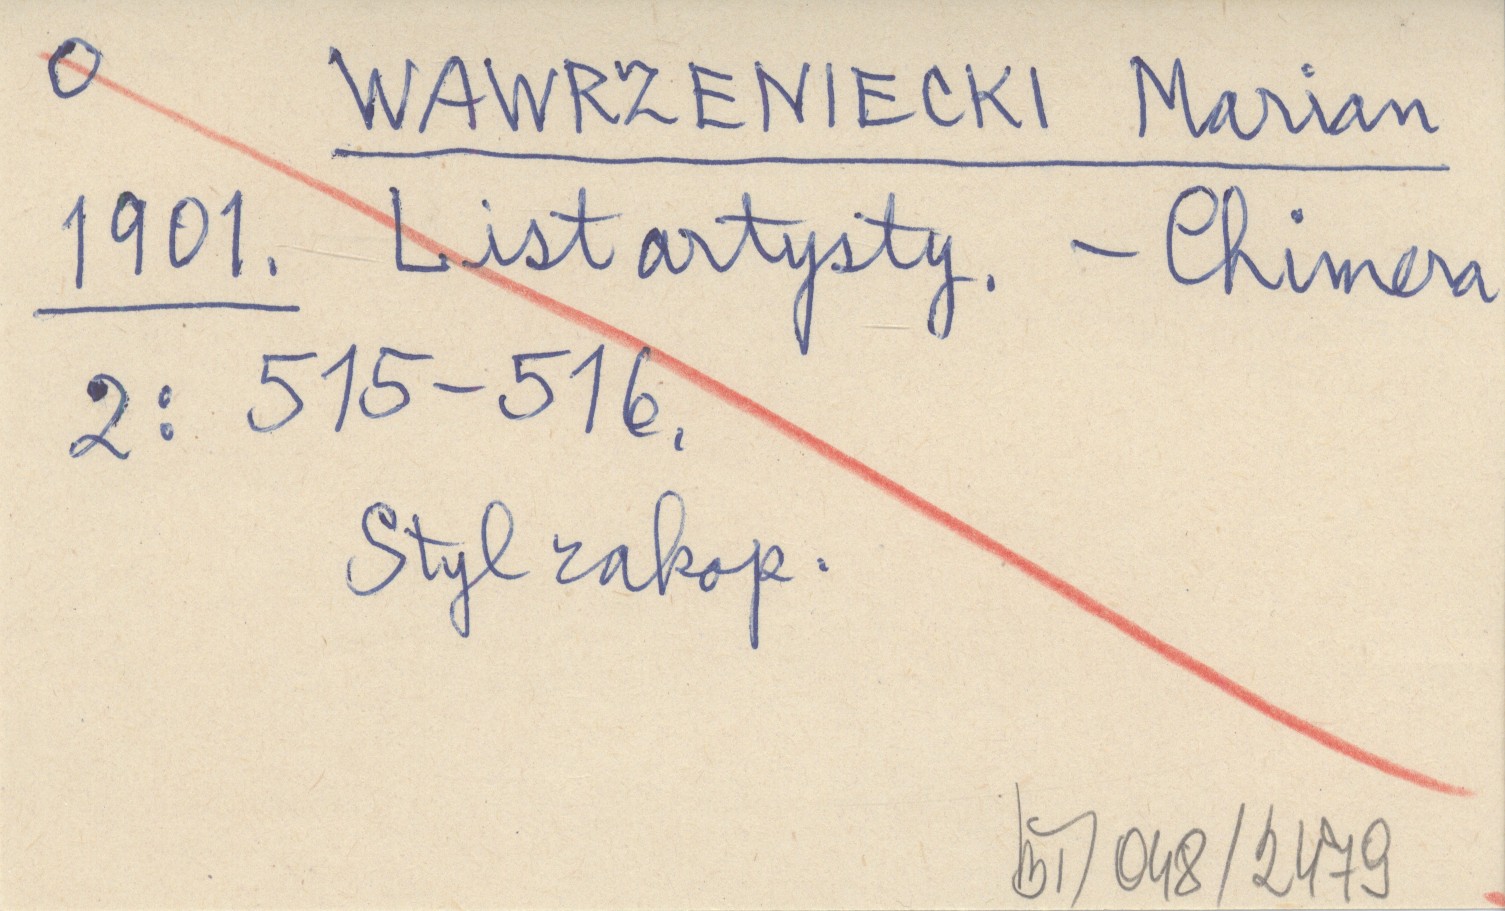 O WAWRZENIECKI Marian
1901. List artysty. - Chimera
2: 515-516.
Styl zakop.
048/2479